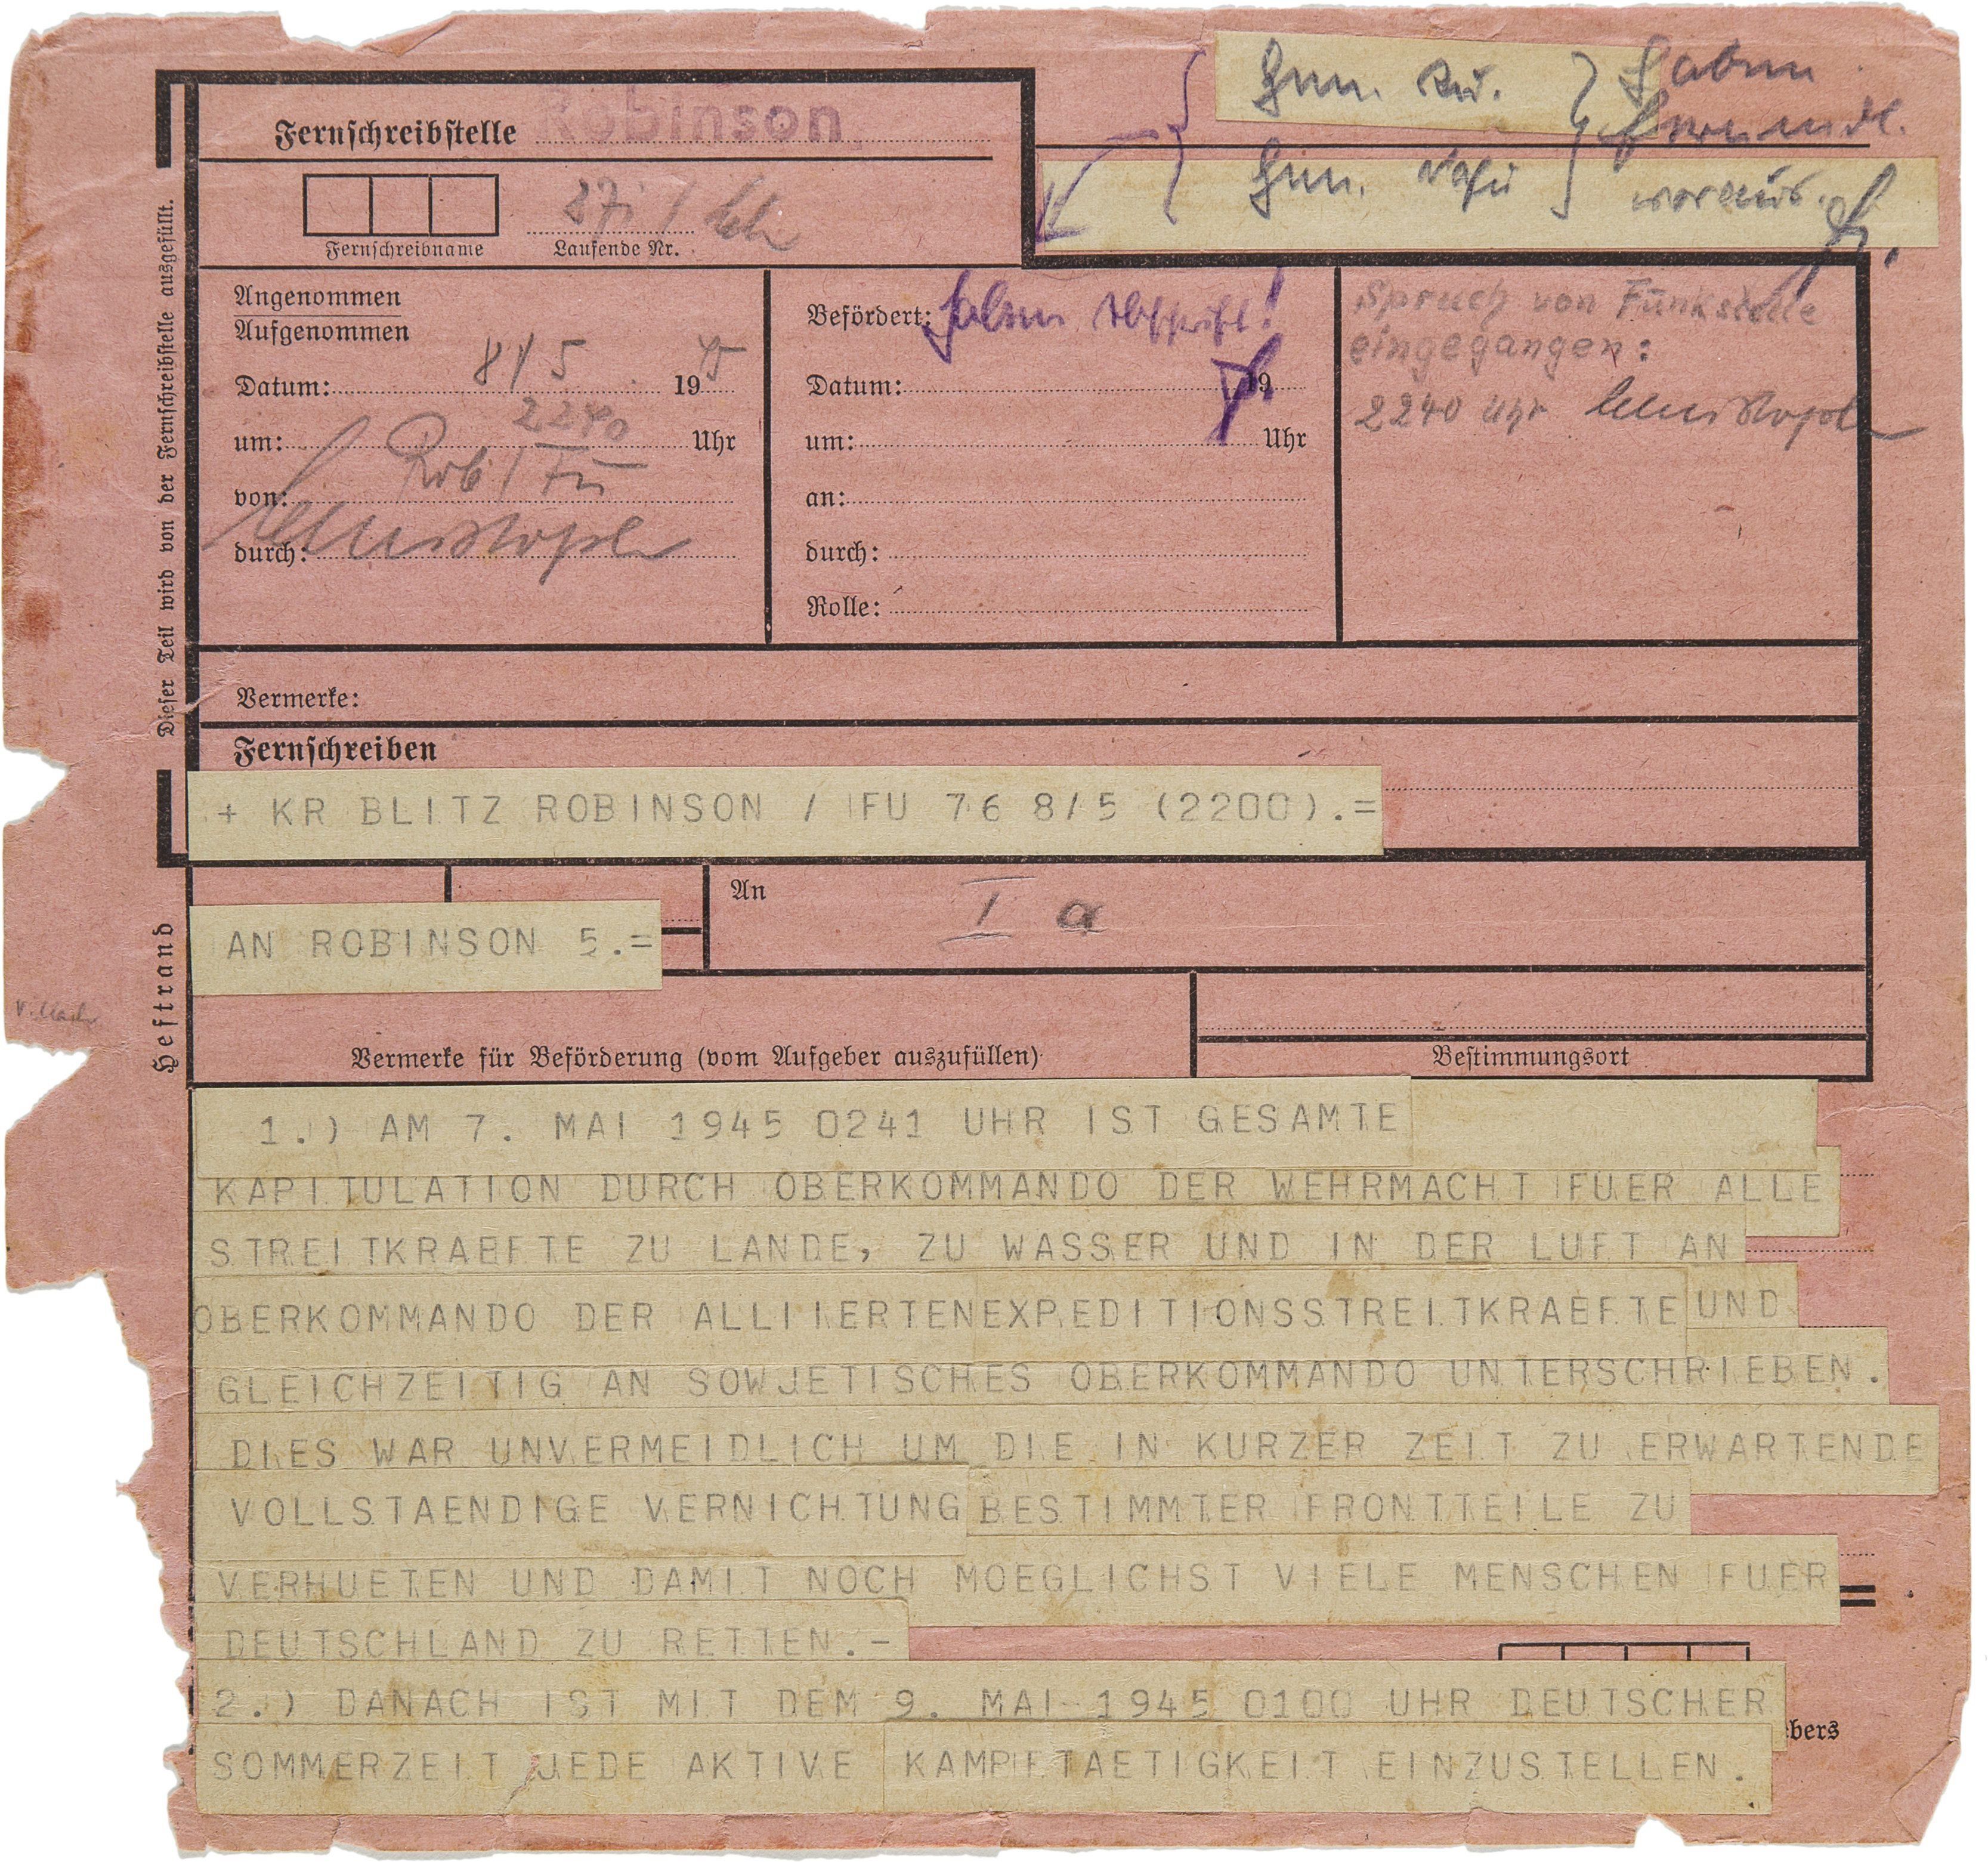 Fernschreibstelle Robinson
Fernschreibname
Laufende Nr.
Gen.
Gen.
haben
voraus.
Angenommen
Aufgenommen
Datum: 8/5 1945
um: 2240 Uhr
von: Rob / Fu
durch:
Befördert: haben Abschrift!
Datum: 19
um: Uhr
an:
durch:
Rolle:
Spruch von Funkstelle
eingegangen:
2240 Uhr
Dieser Teil wird von der Fernschreibstelle ausgefüllt.
Vermerke:
Fernschreiben
+ KR BLITZ ROBINSON / FU 76 8/5 (2200).=
An I a
AN ROBINSON 5.=
Heftrand
Vermerke für Beförderung (vom Aufgeber auszufüllen)
Bestimmungsort
1.) AM 7. MAI 1945 0241 UHR IST GESAMTE
KAPITULATION DURCH OBERKOMMANDO DER WEHRMACHT FUER ALLE
STREITKRAEFTE ZU LANDE, ZU WASSER UND IN DER LUFT AN
OBERKOMMANDO DER ALLIIERTENEXPEDITIONSSTREITKRAEFTE UND
GLEICHZEITIG AN SOWJETISCHES OBERKOMMANDO UNTERSCHRIEBEN.
DIES WAR UNVERMEIDLICH UM DIE IN KURZER ZEIT ZU ERWARTENDE
VOLLSTAENDIGE VERNICHTUNG BESTIMMTER FRONTTEILE ZU
VERHUETEN UND DAMIT NOCH MOEGLICHST VIELE MENSCHEN FUER
DEUTSCHLAND ZU RETTEN.-
2.) DANACH IST MIT DEM 9. MAI 1945 0100 UHR DEUTSCHER
ebers
SOMMERZEIT JEDE AKTIVE KAMPFTAETIGKEIT EINZUSTELLEN.